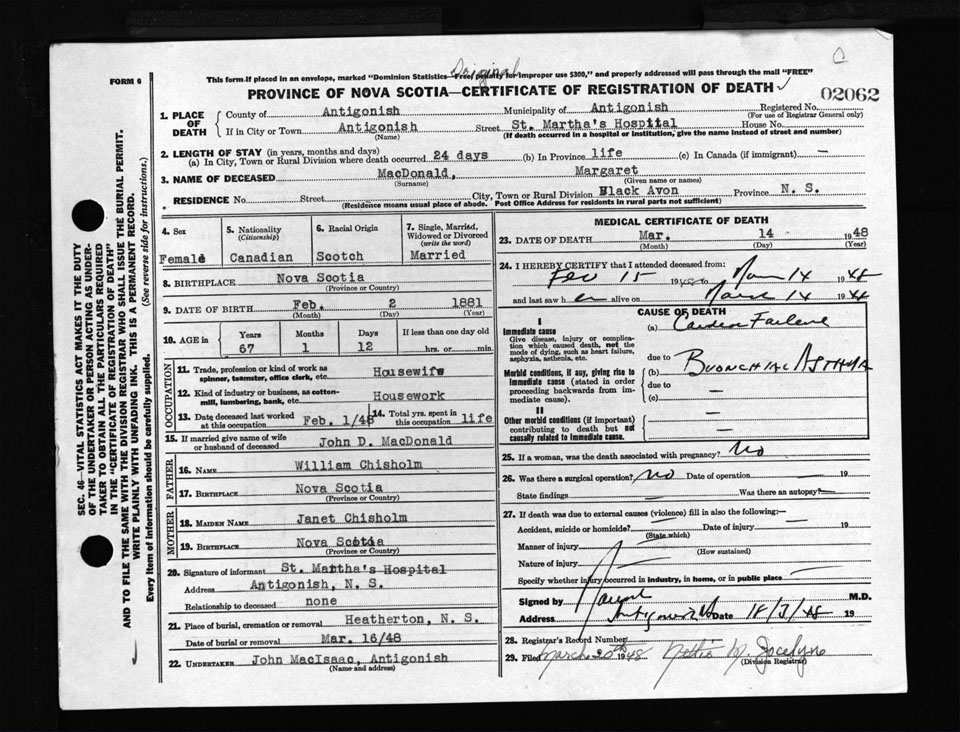 Original
This form if placed in an envelope, marked "Dominion Statistics—Free, penalty for improper use $300," and properly addressed will pass through the mail "FREE"
FORM 6
PROVINCE OF NOVA SCOTIA—CERTIFICATE OF REGISTRATION OF DEATH
02062
1. PLACE OF DEATH
County of Antigonish Municipality of Antigonish Registered No.
(For use of Registrar General only)
If in City or Town Antigonish Street St. Martha's Hospital House No.
(Name) (If death occurred in a hospital or institution, give the name instead of street and number)
2. LENGTH OF STAY (in years, months and days)
(a) In City, Town or Rural Division where death occurred 24 days (b) In Province life (c) In Canada (if immigrant) —
3. NAME OF DECEASED MacDonald, Margaret
(Surname) (Given name or names)
RESIDENCE No. Street City, Town or Rural Division Black Avon Province N. S.
(Residence means usual place of abode. Post Office Address for residents in rural parts not sufficient)
4. Sex
Female
5. Nationality
(Citizenship)
Canadian
6. Racial Origin
Scotch
7. Single, Married, Widowed or Divorced
(write the word)
Married
8. BIRTHPLACE Nova Scotia
(Province or Country)
9. DATE OF BIRTH Feb. 2 1881
(Month) (Day) (Year)
10. AGE in Years Months Days If less than one day old
67 1 12 hrs. or min.
OCCUPATION
11. Trade, profession or kind of work as spinner, teamster, office clerk, etc. Housewife
12. Kind of industry or business, as cotton-mill, lumbering, bank, etc. Housework
13. Date deceased last worked at this occupation Feb. 1/48
14. Total yrs. spent in this occupation life
15. If married give name of wife or husband of deceased John D. MacDonald
FATHER
16. NAME William Chisholm
17. BIRTHPLACE Nova Scotia
(Province or Country)
MOTHER
18. MAIDEN NAME Janet Chisholm
19. BIRTHPLACE Nova Scotia
(Province or Country)
20. Signature of informant St. Martha's Hospital
Address Antigonish, N. S.
Relationship to deceased none
21. Place of burial, cremation or removal Heatherton, N. S.
Date of burial or removal Mar. 16/48
22. UNDERTAKER John MacIsaac, Antigonish
(Name and address)
MEDICAL CERTIFICATE OF DEATH
23. DATE OF DEATH Mar. 14 1948
(Month) (Day) (Year)
24. I HEREBY CERTIFY that I attended deceased from:
Feb 15 1948 to Mar 14 1948
and last saw her alive on March 14 1948
CAUSE OF DEATH
I
Immediate cause
Give disease, injury or complication which caused death, not the mode of dying, such as heart failure, asphyxia, asthenia, etc.
(a) Cardiac Failure
due to
Morbid conditions, if any, giving rise to immediate cause (stated in order proceeding backwards from immediate cause).
(b) Bronchial Asthma
due to —
(c)
II
Other morbid conditions (if important) contributing to death but not causally related to immediate cause.
—
—
25. If a woman, was the death associated with pregnancy? No
26. Was there a surgical operation? No Date of operation 19
State findings Was there an autopsy? —
27. If death was due to external causes (violence) fill in also the following:—
Accident, suicide or homicide? — Date of injury — 19
(State which)
Manner of injury —
(How sustained)
Nature of injury —
Specify whether injury occurred in industry, in home, or in public place —
Signed by M.D.
Address Antigonish Date 18/3/48 19
28. Registrar's Record Number
29. Filed March 20th 1948 M. Jocelyne
(Division Registrar)
SEC. 46—VITAL STATISTICS ACT MAKES IT THE DUTY
OF THE UNDERTAKER OR PERSON ACTING AS UNDER-
TAKER TO OBTAIN ALL THE PARTICULARS REQUIRED
IN THE "CERTIFICATE OF REGISTRATION OF DEATH"
AND TO FILE THE SAME WITH THE DIVISION REGISTRAR WHO SHALL ISSUE THE BURIAL PERMIT.
WRITE PLAINLY WITH UNFADING INK. THIS IS A PERMANENT RECORD.
Every item of information should be carefully supplied. (See reverse side for instructions.)